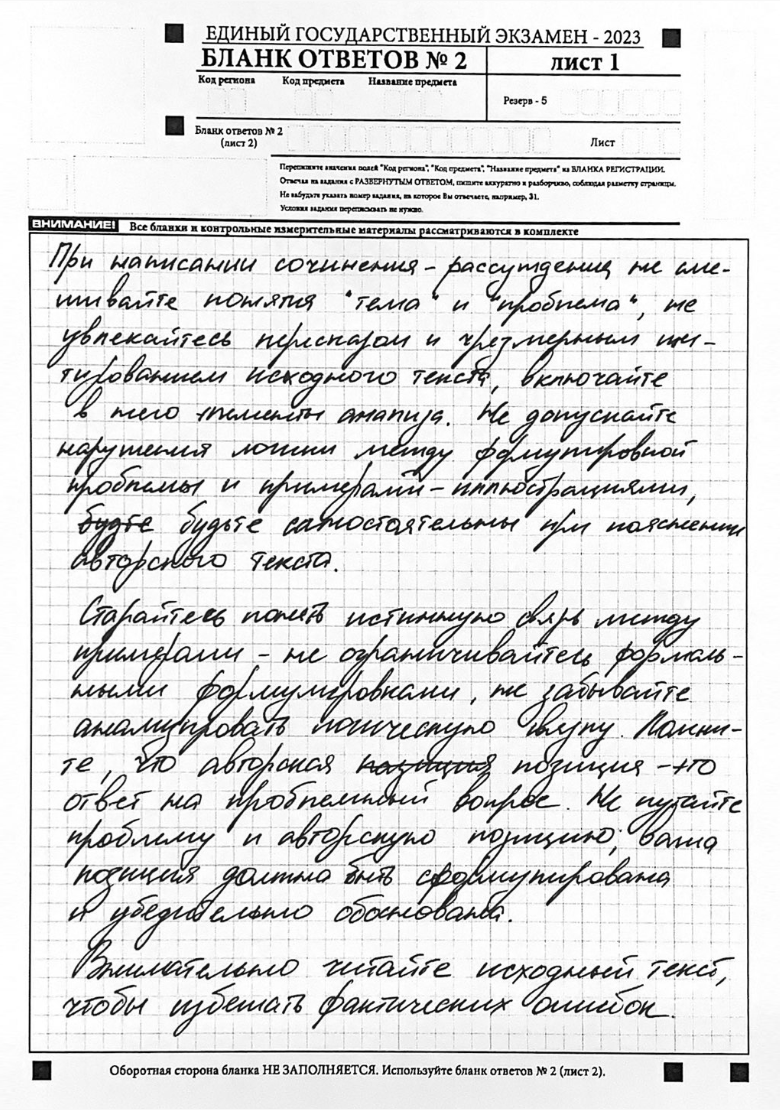 ЕДИНЫЙ ГОСУДАРСТВЕННЫЙ ЭКЗАМЕН - 2023
БЛАНК ОТВЕТОВ № 2
лист 1
Код региона Код предмета Название предмета
Резерв - 5
Бланк ответов № 2
(лист 2)
Лист
Перепишите значения полей "Код региона", "Код предмета", "Название предмета" из БЛАНКА РЕГИСТРАЦИИ.
Отвечая на задания с РАЗВЕРНУТЫМ ОТВЕТОМ, пишите аккуратно и разборчиво, соблюдая разметку страницы.
Не забудьте указать номер задания, на которое Вы отвечаете, например, 31.
Условия задания переписывать не нужно.
ВНИМАНИЕ! Все бланки и контрольные измерительные материалы рассматриваются в комплекте
При написании сочинения - рассуждения не сме-
шивайте понятия "тема" и "проблема", не
увлекайтесь пересказом и чрезмерным ци-
тированием исходного текста, включайте
в него элементы анализа. Не допускайте
нарушения логики между формулировкой
проблемы и примерами-иллюстрациями,
будте будьте самостоятельны при пояснении
авторского текста.
Старайтесь понять истинную связь между
примерами - не ограничивайтесь формаль-
ными формулировками, не забывайте
анализировать логическую связку. Помни-
те, что авторская позиция позиция - это
ответ на проблемный вопрос. Не путайте
проблему и авторскую позицию; ваша
позиция должна быть сформулирована
и убедительно обоснована.
Внимательно читайте исходный текст,
чтобы избежать фактических ошибок.
Оборотная сторона бланка НЕ ЗАПОЛНЯЕТСЯ. Используйте бланк ответов № 2 (лист 2).